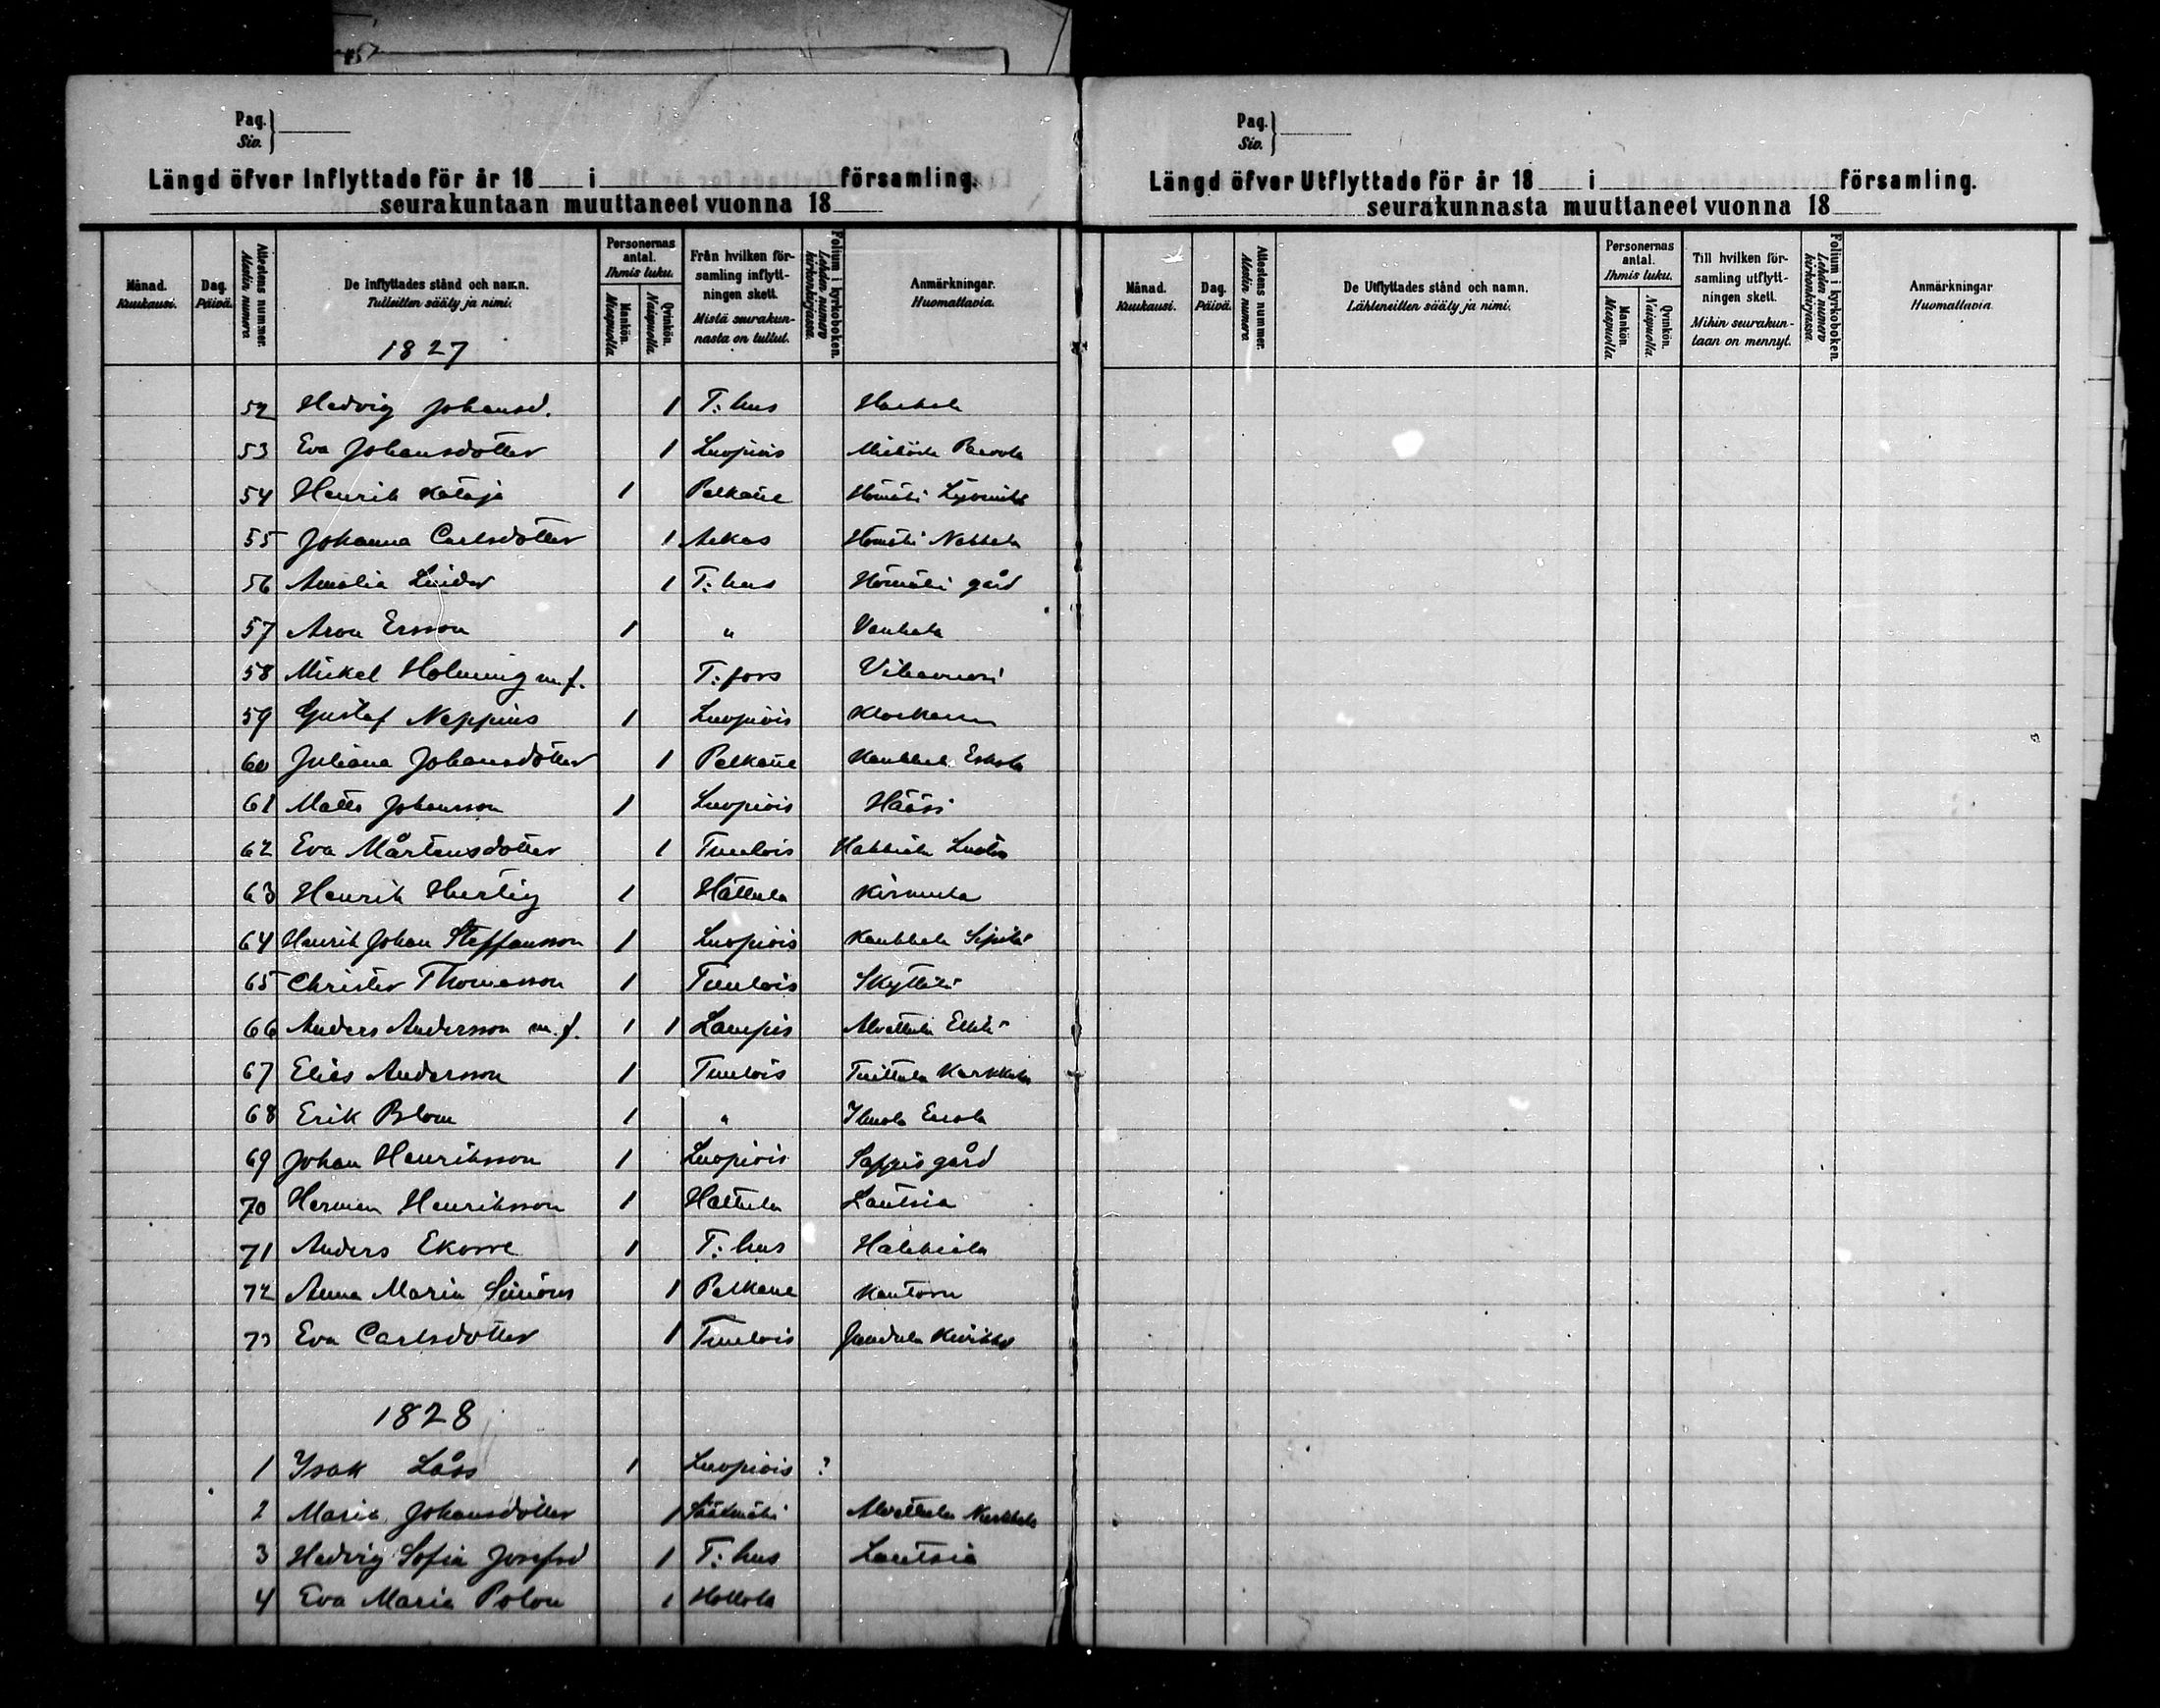 Pag.
Siv.
Längd öfver Inflyttade för år 18 i församling.
seurakuntaan muuttaneet vuonna 18
Månad. Kuukausi.
Dag. Päivä.
Attestens nummer. Alestin numero
De Inflyttades stånd och namn.
Tulleitten sääty ja nimi.
Personernas antal. Ihmis luku.
Mankön. Miespuolla
Qvinkön. Naispuolla
Från hvilken församling inflyttningen skett.
Mistä seurakunnasta on tullut.
Folium i kyrkoboken. Lehden numero kirkonkirjassa.
Anmärkningar.
Huomattavia.
1827
52 Hedvig Johansd. 1 T:hus
53 Eva Johansdotter 1 Luopiois
54 Henrik Kataja 1 Pelkäne
55 Johanna Carlsdotter 1 Ackas
56 Amalia Linder 1 T:hus gård
57 Aron Ersson 1 " Vanhala
58 Mickel Holming m.f. T:fors Vihavuori
59 Gustaf Neppius 1 Luopiois Klockaren
60 Juliana Johansdotter 1 Pelkäne Eskola
61 Matts Johansson 1 Luopiois
62 Eva Mårtensdotter 1 Tuulois
63 Henrik Hurtig 1 Hattula
64 Henrik Johan Steffansson 1 Luopiois
65 Christer Thomasson 1 Tuulois Skyttälä
66 Anders Andersson m.f. 1 1 Lampis Alvettula
67 Elias Andersson 1 Tuulois Tuittula Karkkola
68 Erik Blom 1 "
69 Johan Henriksson 1 Luopiois Sappis gård
70 Herman Henriksson 1 Hattula Lautsia
71 Anders Ekorre 1 T:hus
72 Anna Maria 1 Pelkäne Kantorn
73 Eva Carlsdotter 1 Tuulois
1828
1 Isak Låss 1 Luopiois ?
2 Maria Johansdotter 1 Sääksmäki Alvettula
3 Hedvig Sofia Josefsd 1 T:hus Lautsia
4 Eva Maria Polon 1 Hollola
Pag.
Siv.
Längd öfver Utflyttade för år 18 i församling.
seurakunnasta muuttaneet vuonna 18
Månad. Kuukausi.
Dag. Päivä.
Attestens nummer. Alestin numero.
De Utflyttades stånd och namn.
Lähteneitten sääty ja nimi.
Personernas antal. Ihmis luku.
Mankön. Miespuolla.
Qvinkön. Naispuolla.
Till hvilken församling utflyttningen skett.
Mihin seurakuntaan on mennyt.
Folium i kyrkoboken. Lehden numero kirkonkirjassa.
Anmärkningar
Huomattavia.